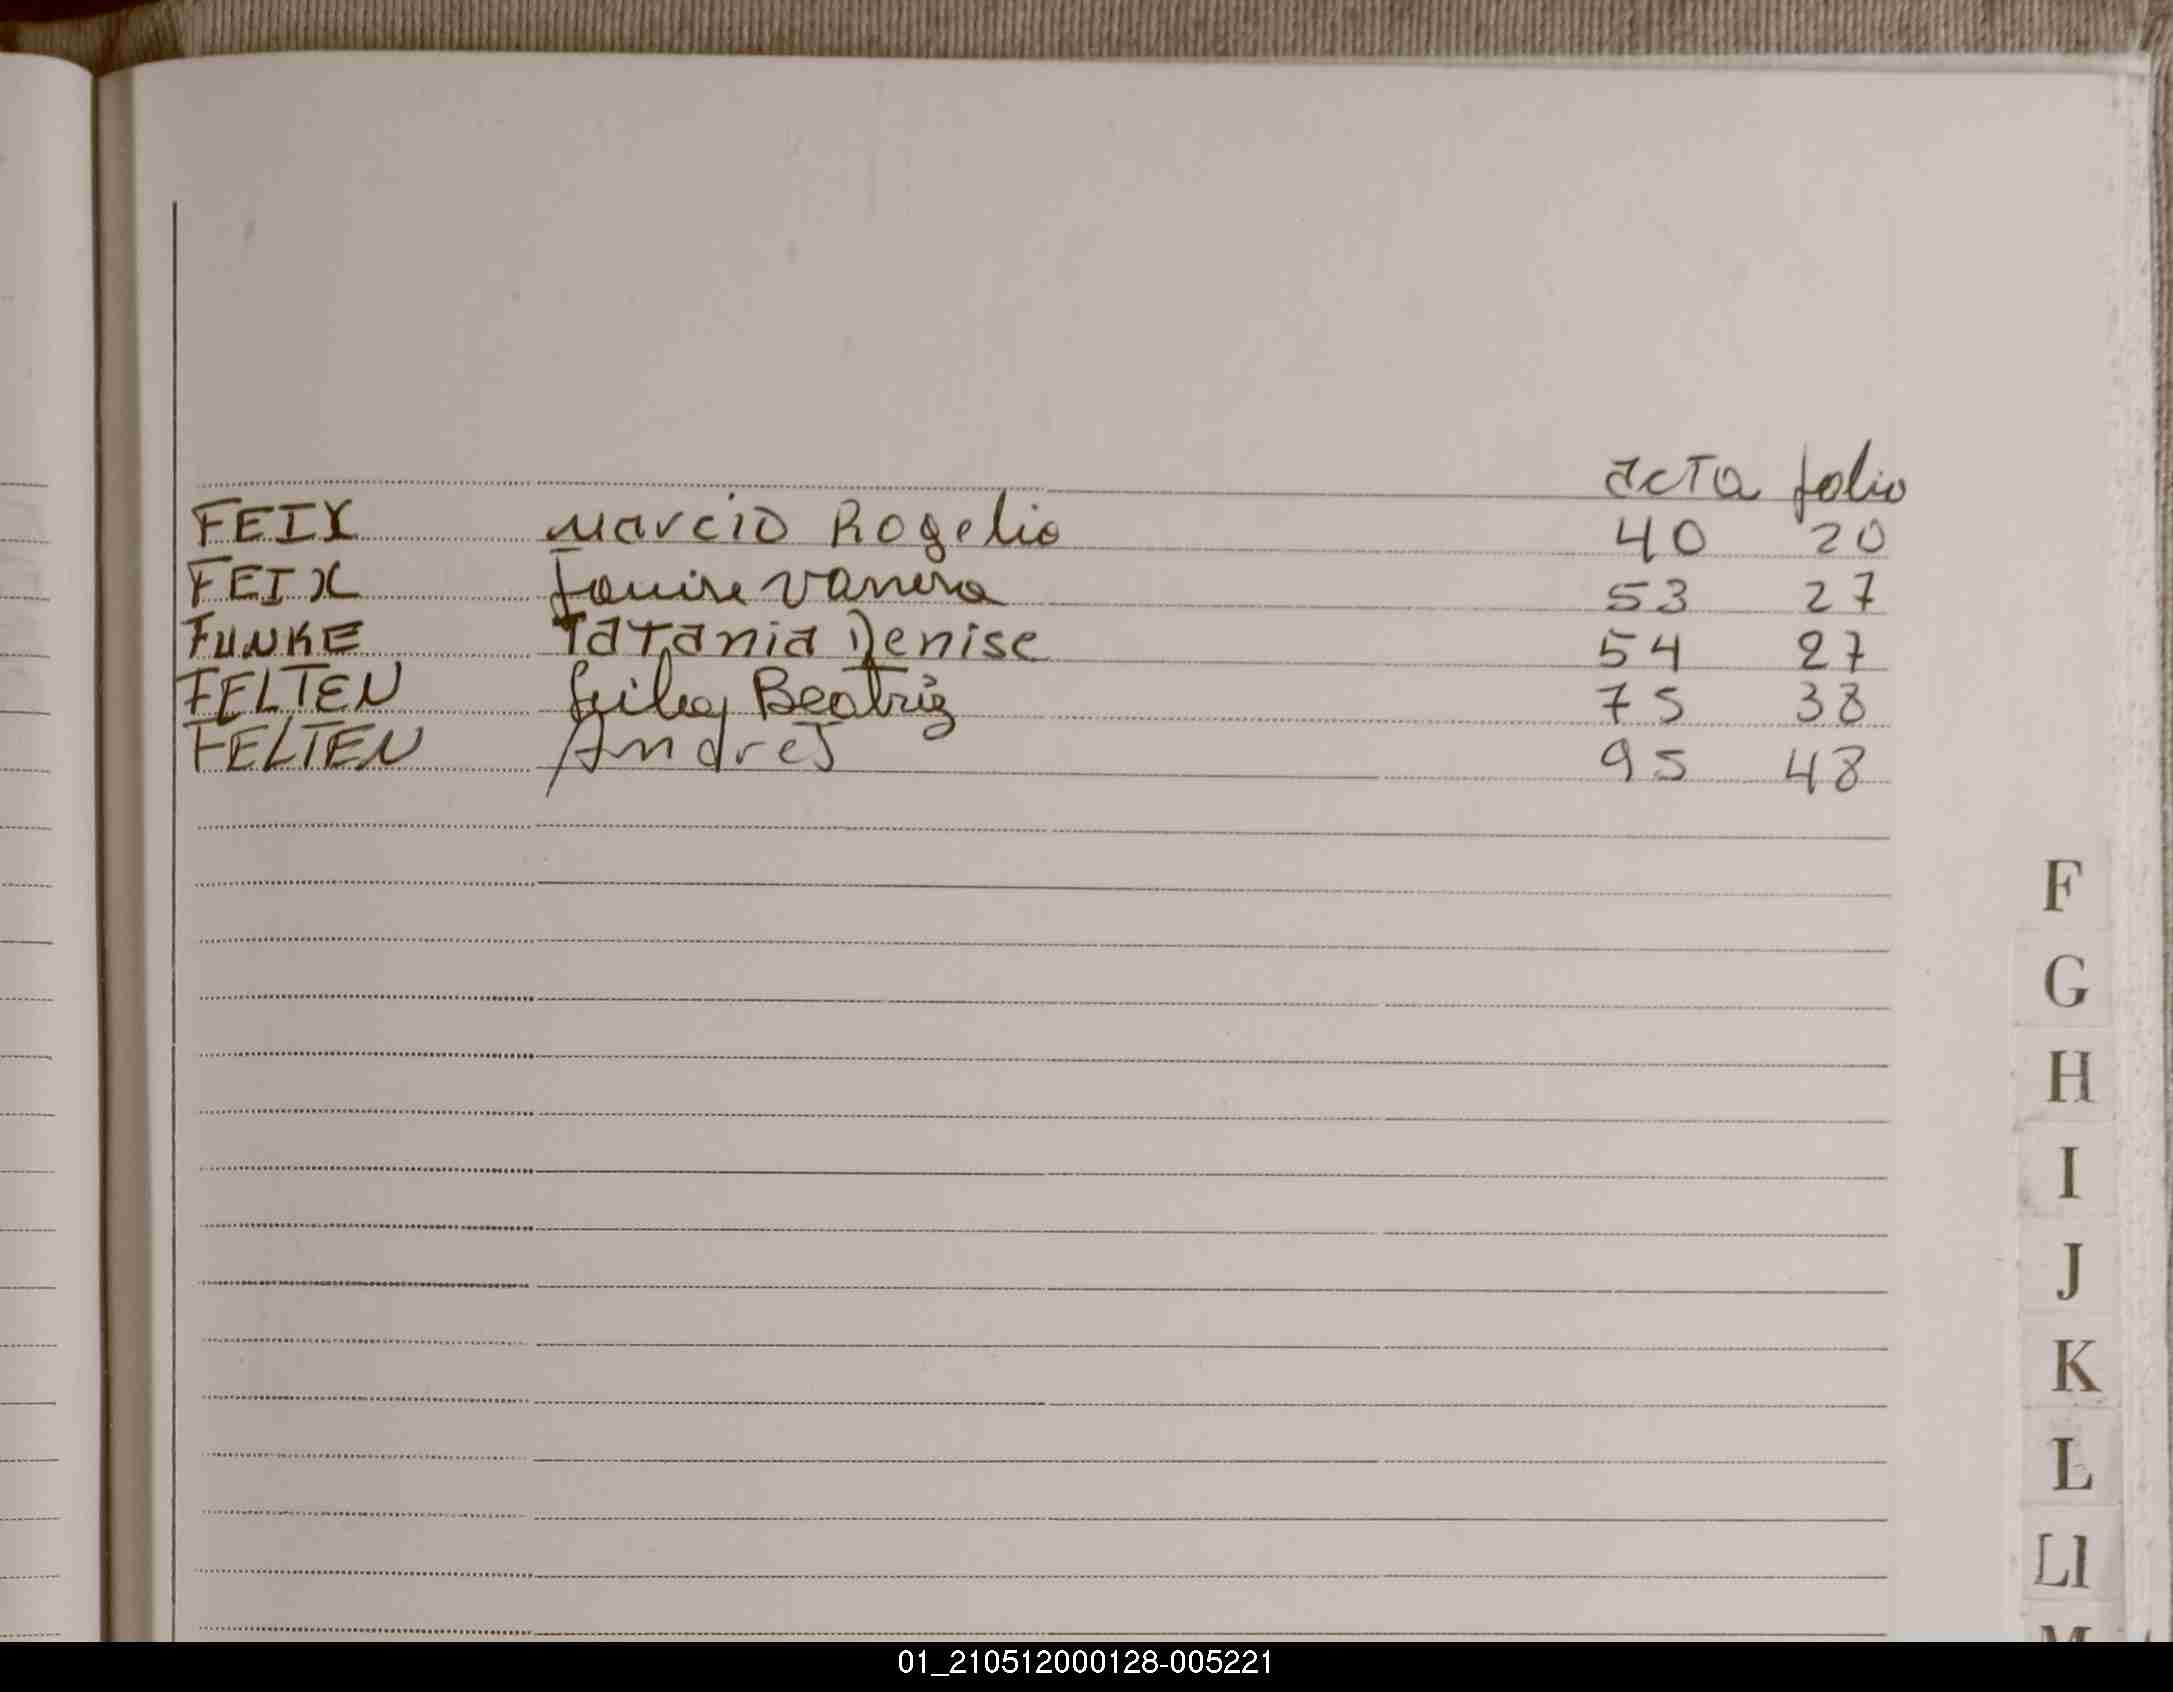 acta folio
FEIX Marcio Rogelio 40 20
FEIX Vanesa 53 27
FUNKE Tatania Denise 54 27
FELTEN Beatriz 75 38
FELTEN Andres 95 48
F
G
H
I
J
K
L
Ll
M
01_210512000128-005221